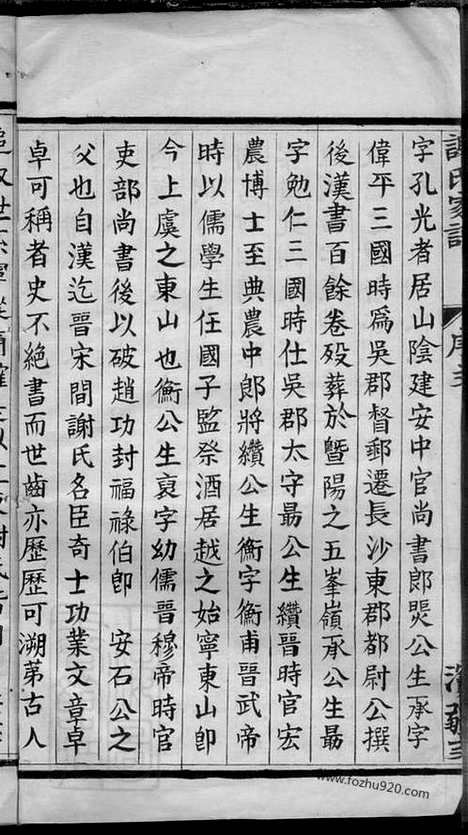 謝氏家譜
字孔光者居山陰建安中官尚書郎煚公生承字
偉平三國時爲吳郡督郵遷長沙東郡都尉公撰
後漢書百餘卷歿葬於暨陽之五峯嶺承公生勗
字勉仁三國時仕吳郡太守勗公生纘晉時官宏
農博士至典農中郎將纘公生衡字衡甫晉武帝
時以儒學生任國子監祭酒居越之始寧東山卽
今上虞之東山也衡公生裒字幼儒晉穆帝時官
吏部尚書後以破趙功封福祿伯卽 安石公之
父也自漢迄晉宋間謝氏名臣奇士功業文章卓
卓可稱者史不絕書而世齒亦歷歷可溯苐古人
www.fozhu920.com